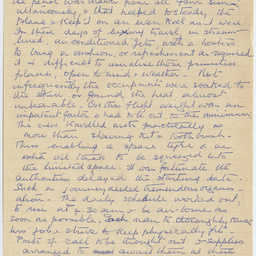 the petrol was drawn from all four simul-
taneously, & that helped to steady the
plane & keep it on an even keel as it were
In these days of luxury travel, in stream-
lined, air conditioned jets with a hostess
to bring a cushion or refreshment as required
it is difficult to visualise those primitive
planes, open to wind & weather. Not
infrequently the occupants were soaked to
the skin or found the heat almost
unbearable. On this flight weight was an
important factor & had to be cut to the minimum,
the crew travelled with practically no
more than shaving kit & toothbrush.
Thus enabling a spare tyre & an
extra oil tank to be squeezed into
the limited space. It was fortunate the
authorities delayed the starting date.
Such a journey needed tremendous organis-
ation. The daily schedule worked out,
to rise at 4.30 am & be air-borne as
soon as possible, each man to thoroughly know
his job & strive to keep physically fit.
Ports of call to be thought out & supplies
arranged to await them at these